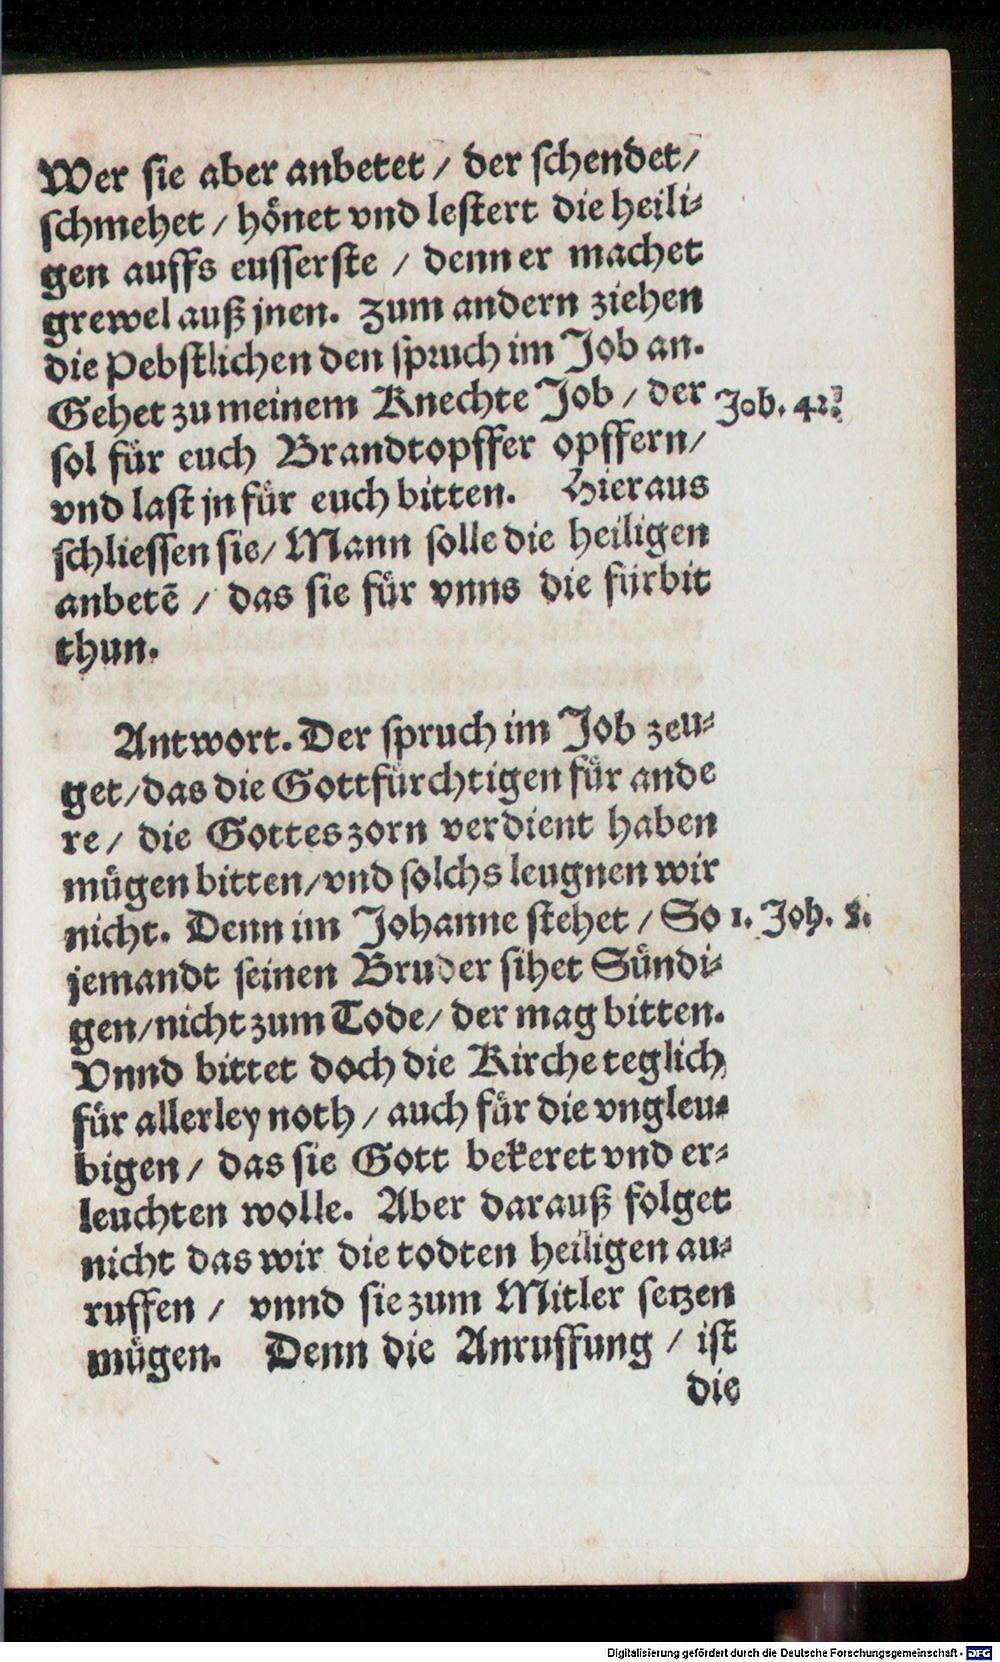 Wer sie aber anbetet / der schendet /
schmehet / hönet vnd lestert die heili-
gen auffs eusserste / denn er machet
grewel auß jnen. Zum andern ziehen
die Pebstlichen den spruch im Job an.
Gehet zu meinem Knechte Job / der
Job. 42.
sol für euch Brandtopffer opffern /
vnd last jn für euch bitten. Hieraus
schliessen sie / Mann solle die heiligen
anbetē / das sie für vnns die fürbit
thun.
Antwort. Der spruch im Job zeu-
get / das die Gottfürchtigen für ande
re / die Gottes zorn verdient haben
mügen bitten / vnd solchs leugnen wir
nicht. Denn im Johanne stehet / So
1. Joh. 5.
jemandt seinen Bruder sihet Sündi-
gen / nicht zum Tode / der mag bitten.
Vnnd bittet doch die Kirche teglich
für allerley noth / auch für die vngleu-
bigen / das sie Gott bekeret vnd er-
leuchten wolle. Aber darauß folget
nicht das wir die todten heiligen an-
ruffen / vnnd sie zum Mitler setzen
mügen. Denn die Anruffung / ist
die
Digitalisierung gefördert durch die Deutsche Forschungsgemeinschaft - DFG